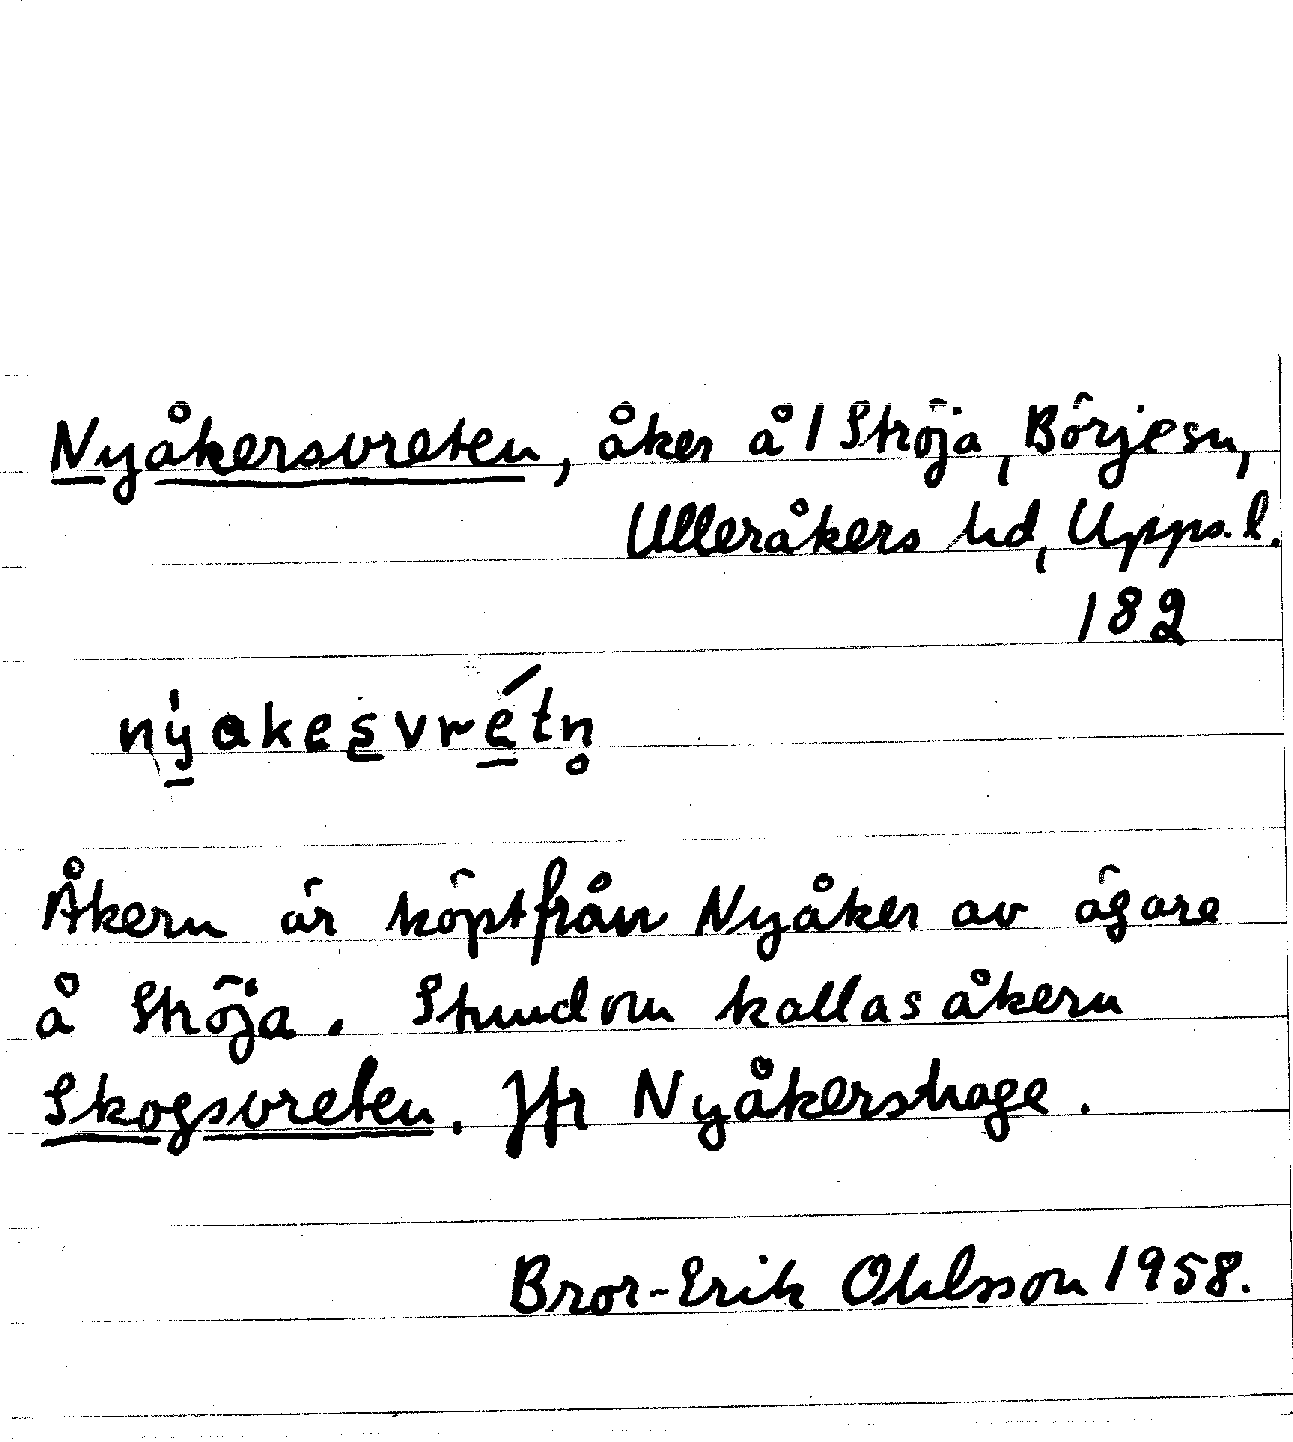 Nyåkersvreten, åker å 1 Ströja, Börje sn,
Ulleråkers hd, Upps. l.
182
nyakesvretn̥
Åkern är köpt från Nyåker av ägare
å Ströja. Stundom kallas åkern
Skogsvreten. Jfr Nyåkershage.
Bror-Erik Ohlsson 1958.